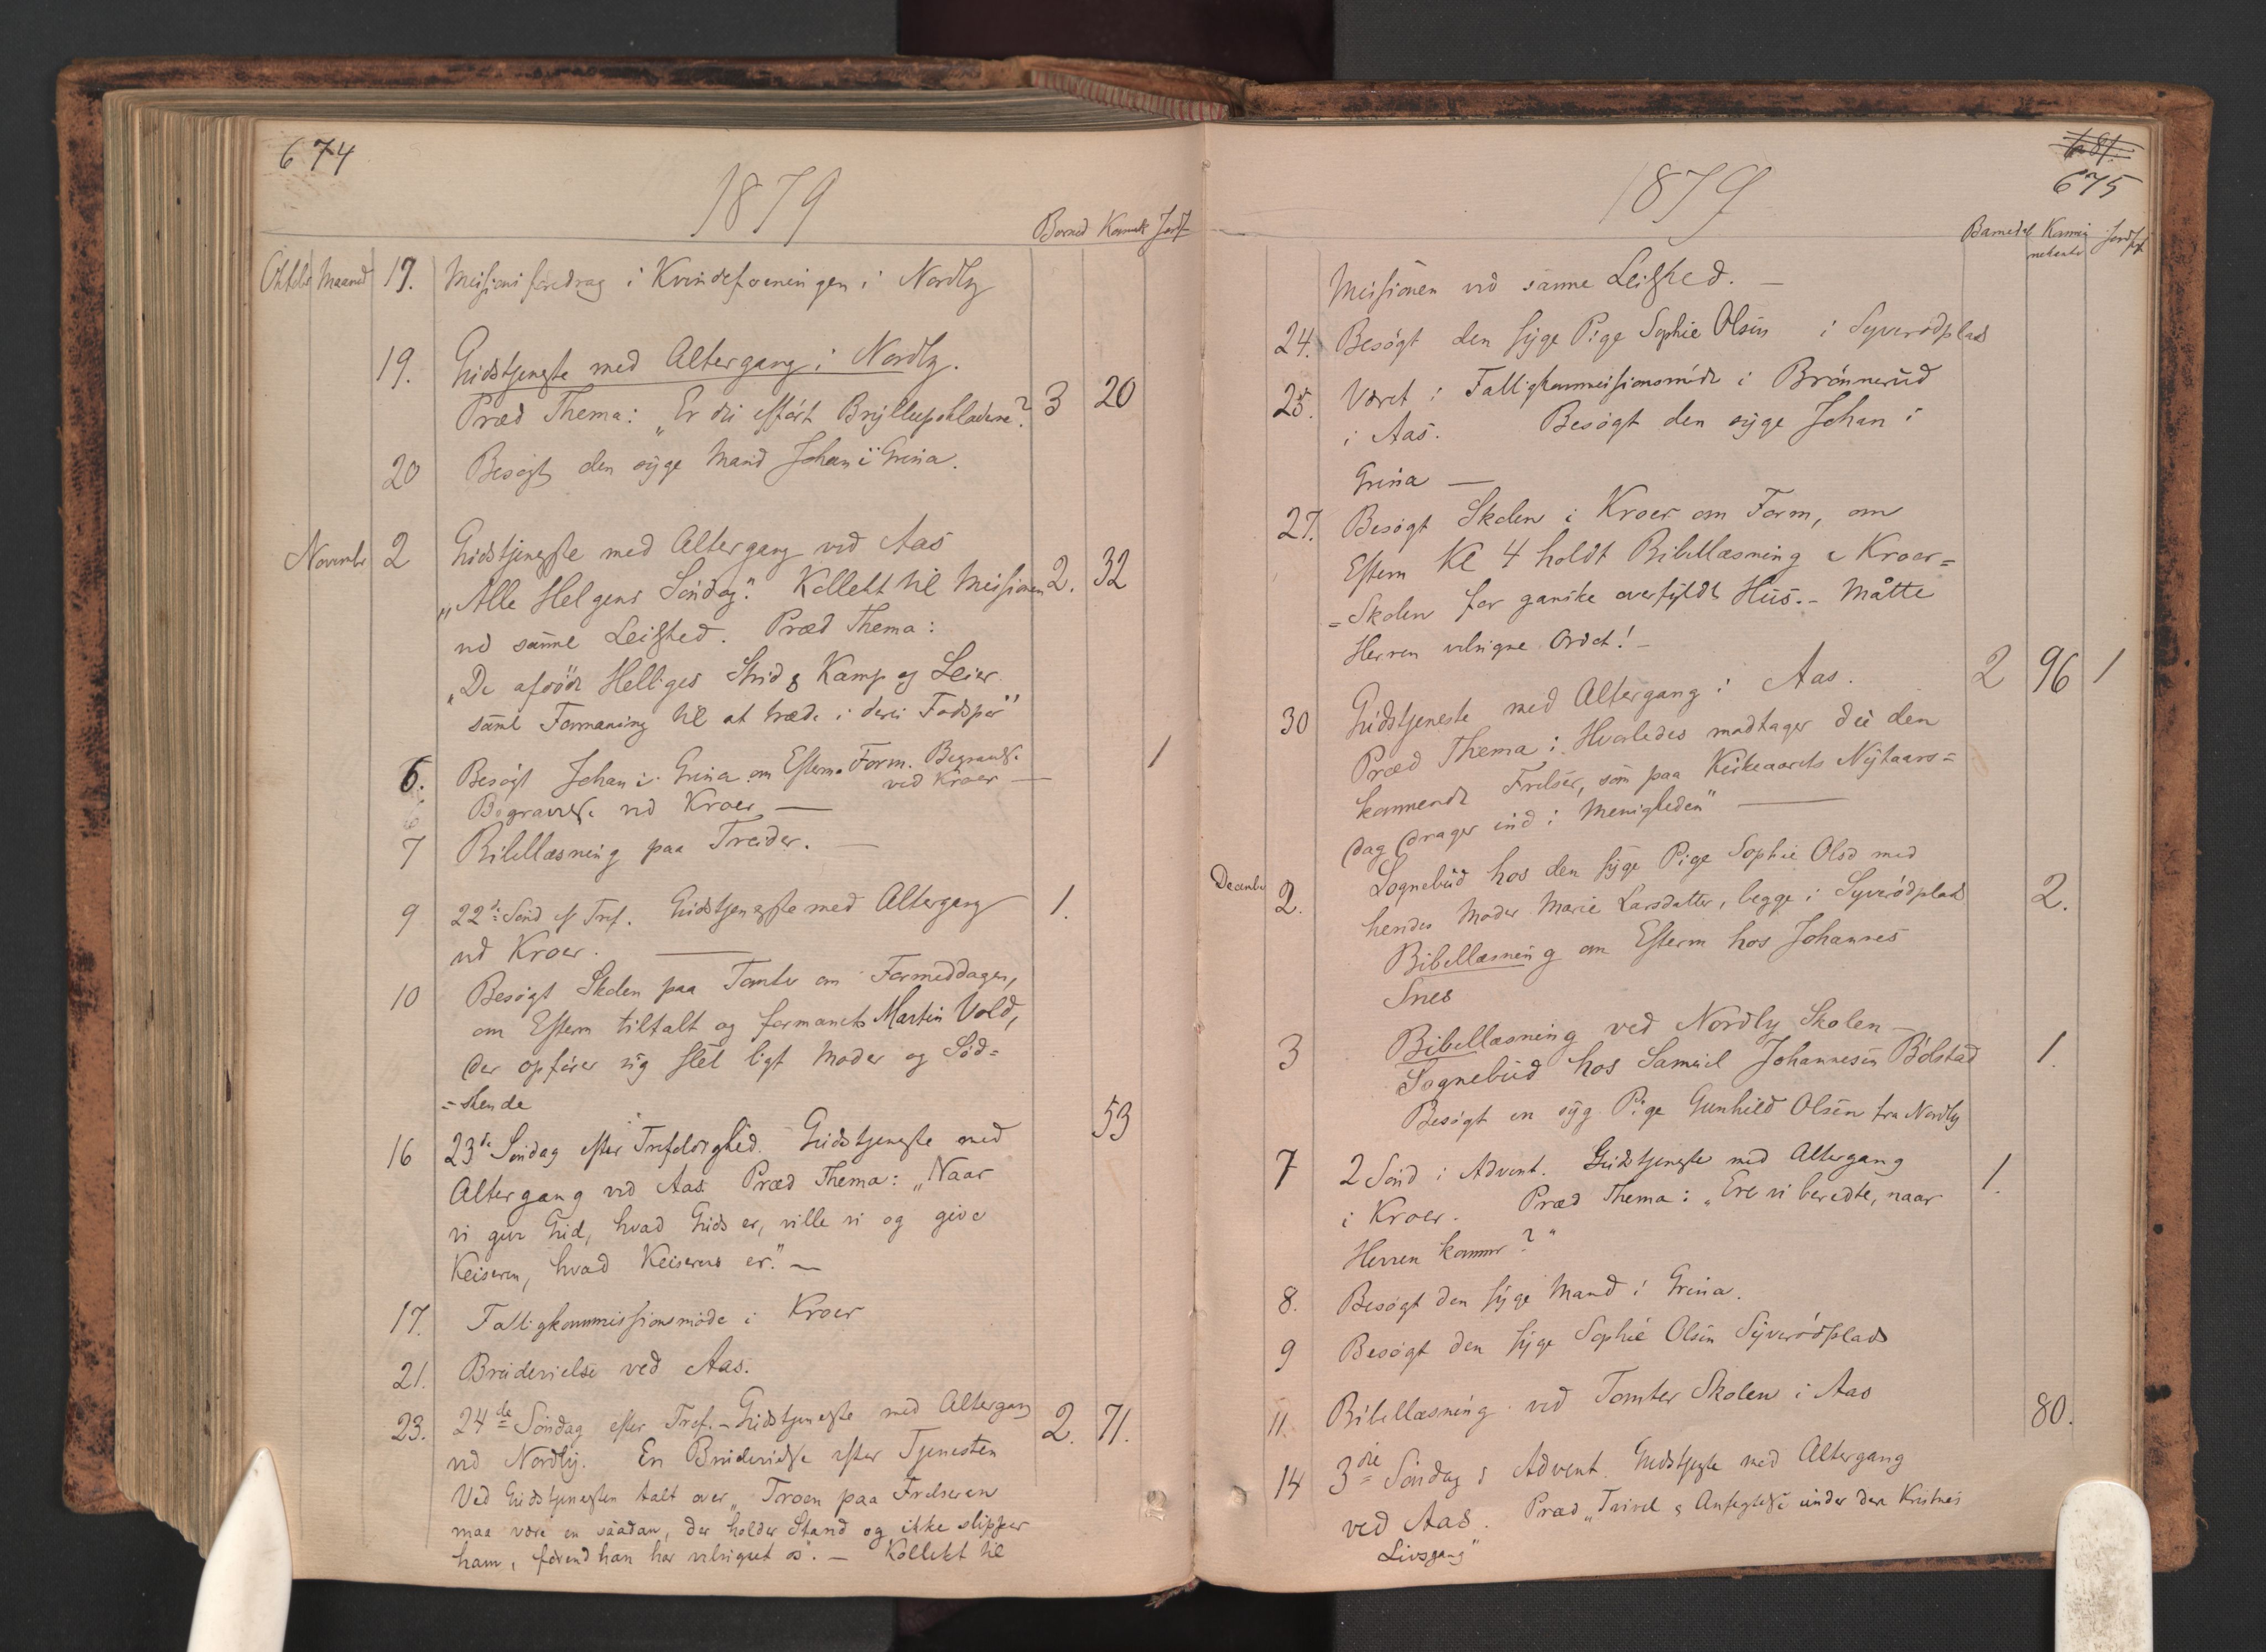 674
1879
Barned Komuk Jordf
Oktober Maaned 17. Missionsforedrag i Kvindeforeningen i Nordby
19. Gudstjeneste med Altergang i Nordby.
Præd Thema: „Er du iført Bryllupsklædene? 3 20
20 Besøgt den syge Mand Johan i Grina.
Novembr 2 Gudstjeneste med Altergang ved Aas
„Alle Helgens Søndag". Kollekt til Missionen 2. 32
ved samme Leilighed. Præd Thema:
„De afdøde Helliges Strid & Kamp og Seier
samt Formaning til at træde i deres Fodspor"
6. Besøgt Johan i Grina om Efterm. Form. Begravelse 1
ved Kroer —
Begravelse ved Kroer —
7 Bibellæsning paa Treider. —
9 22de Sønd ef Tref. Gudstjeneste med Altergang 1.
ved Kroer. —
10 Besøgt Skolen paa Tomter om Formiddagen,
om Efterm tiltalt og formanet Martin Vold,
der opfører sig slet ligt Moder og Sød=
=skende
16 23de Søndag efter Trefoldighed. Gudstjeneste med 53
Altergang ved Aas. Præd Thema: „Naar
vi give Gud, hvad Guds er, ville vi og give
Keiseren, hvad Keiserens er". —
17. Fattigkommissionsmøde i Kroer
21. Brudevielse ved Aas.
23. 24de Søndag efter Tref. – Gudstjeneste med Altergang 2. 71.
ved Nordby. En Brudevielse efter Tjenesten
Ved Gudstjenesten talt over „Troen paa Frelseren
maa være en saadan, der holder Stand og ikke slipper
ham, førend han har velsignet os". — Kollekt til
681.
675
1879
Barnedab Kommu
nikanter Jordf
Missionen ved samme Leilighed. —
24. Besøgt den syge Pige Sophie Olsen i Syverødplads
25. Været i Fattigkommissionsmøde i Brønnerud
i Aas. Besøgt den syge Johan i
Grina —
27. Besøgt Skolen i Kroer om Form, om
Efterm Kl 4 holdt Bibellæsning i Kroer=
=Skolen for ganske overfyldt Hus. – Måtte
Herren velsigne Ordet! –
30 Gudstjeneste med Altergang i Aas. 2 96 1
Præd Thema: Hvorledes modtager du den
kommende Frelser, som paa Kirkeaarets Nytaars=
dag drager ind i Menigheden" —
Decembr 2. Sognebud hos den syge Pige Sophie Olsd med
hendes Moder Marie Larsdatter, begge i Syverødplads 2.
Bibellæsning om Efterm hos Johannes
Snes
3 Bibellæsning ved Nordby Skolen –
Sognebud hos Samuel Johannesen Bølstad 1.
Besøgt en syg Pige Gunhild Olsen fra Nordby
7 2 Sønd i Advent. Gudstjeneste med Altergang
i Kroer. Præd Thema: „Ere vi beredte, naar 1.
Herren kommer?"
8. Besøgt den syge Mand i Grina.
9 Besøgt den syge Sophie Olsen Syverødplads
11. Bibellæsning ved Tomter Skolen i Aas
14 3die Søndag i Advent. Gudstjeneste med Altergang 80.
ved Aas. Præd „Tvivl & Anfægtelse under den Kristnes
Livsgang"